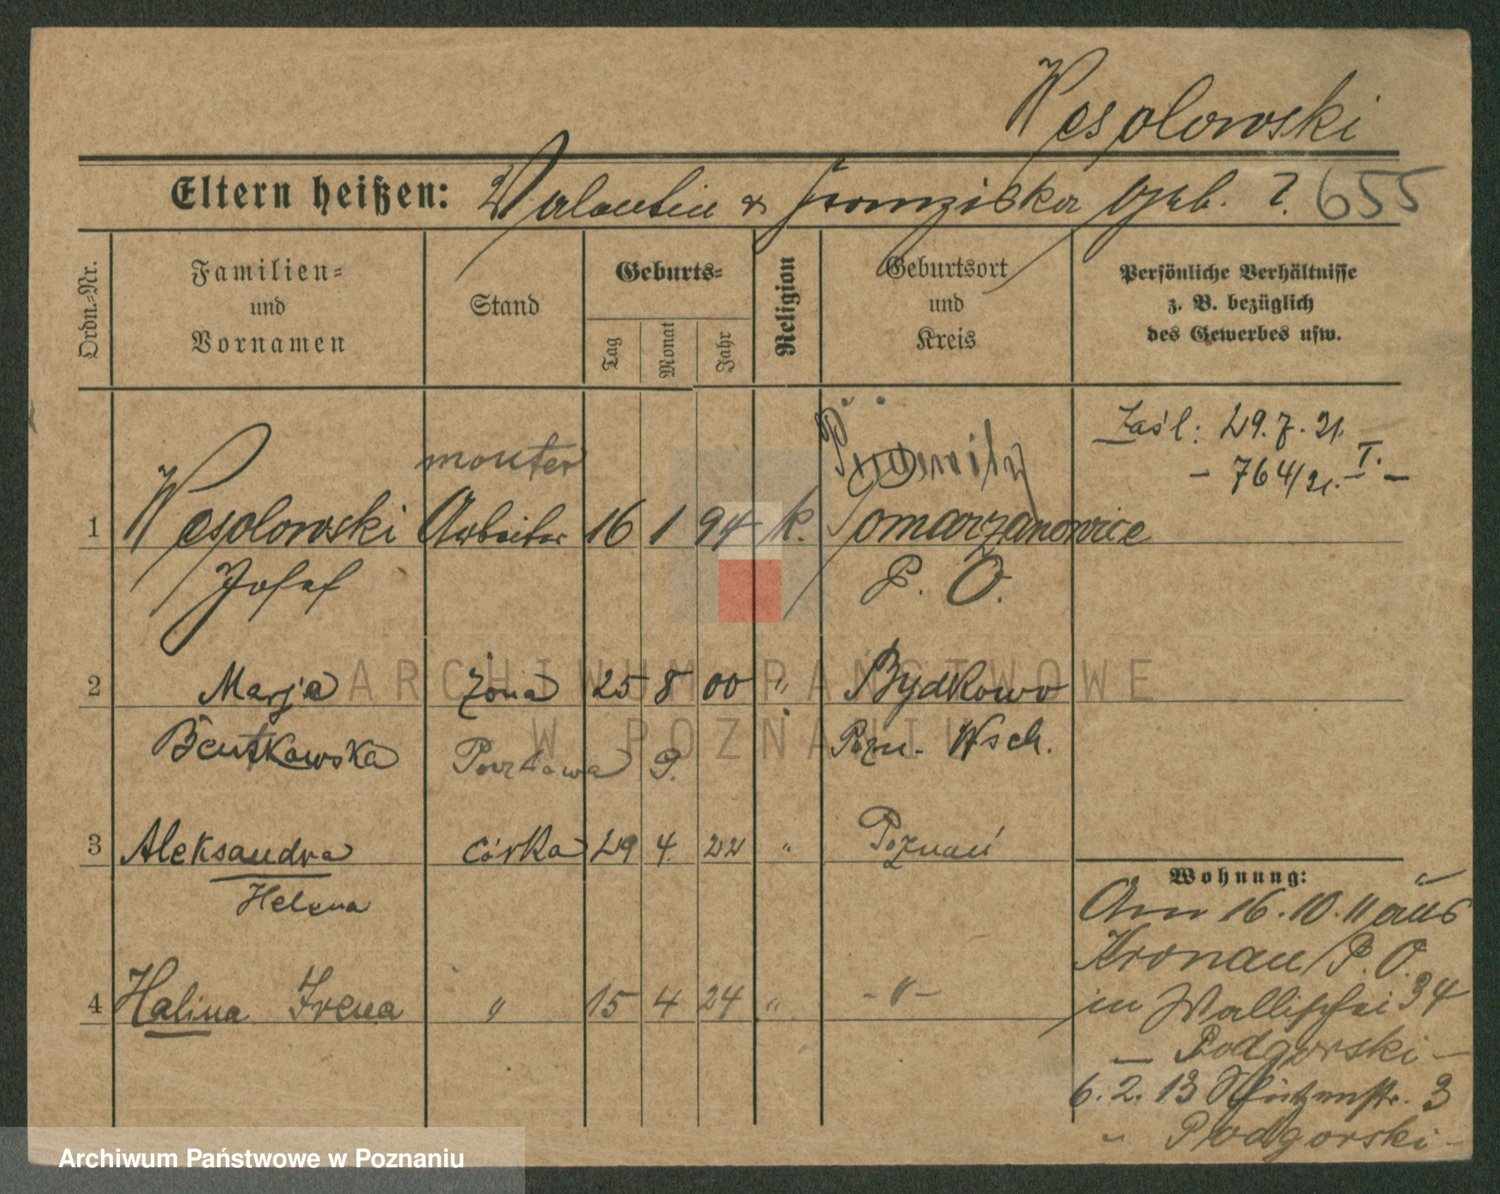 Wesolowski
Eltern heißen: Valentin & Franziska geb. ?. 655
Ordn.-Nr.
Familien-
und
Vornamen
Stand
Geburts-
Tag
Monat
Jahr
Religion
Geburtsort
und
Kreis
Persönliche Verhältnisse
z. B. bezüglich
des Gewerbes usw.
Zaśl: 29.7.21.
- 764/21. I. -
monter
1 Wesolowski Arbeiter 16 1 94 k. Pomarzanowice
Josef P. O.
2 Marja żona 25 8 00 " Bydkowo
Bentkowska P. Pozn. Wsch.
3 Aleksandra córka 29 4. 22 " Poznań
Helena
4 Halina Irena " 15 4 24 " - " -
Wohnung:
Am 16.10.11 aus
Kronau P. O.
in Wallischei 34
- Podgorski -
6.2.13 Schützenstr. 3
- Podgorski -
ARCHIWUM PAŃSTWOWE
W POZNANIU
Archiwum Państwowe w Poznaniu